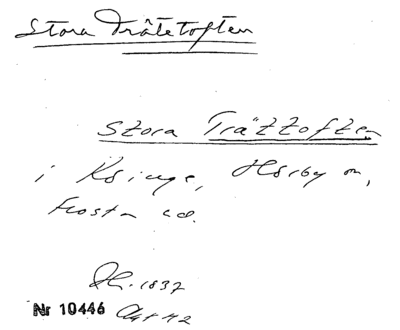 Stora Trätetoften
Stora Trättoften
i Ksinge, Hörby sn,
Frosta hd.
1837
Nr 10446 Akt 42